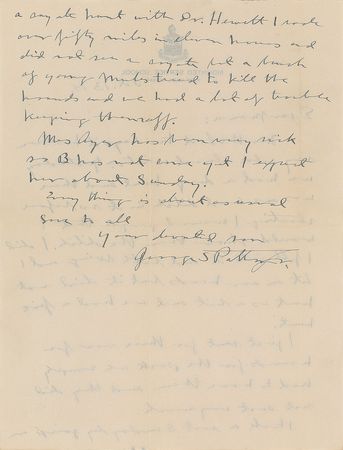 a coyote hunt with Dr. Hewett I rode
over fifty miles in eleven hours and
did not see a coyote but a bunch
of young mules tried to kill the
hounds and we had a lot of trouble
keeping them off.
Mrs Ayer has been very sick
so B has not come yet I expect
her about Sunday.
Every thing is about as usual
Love to all
Your devoted son
George S Patton Jr.